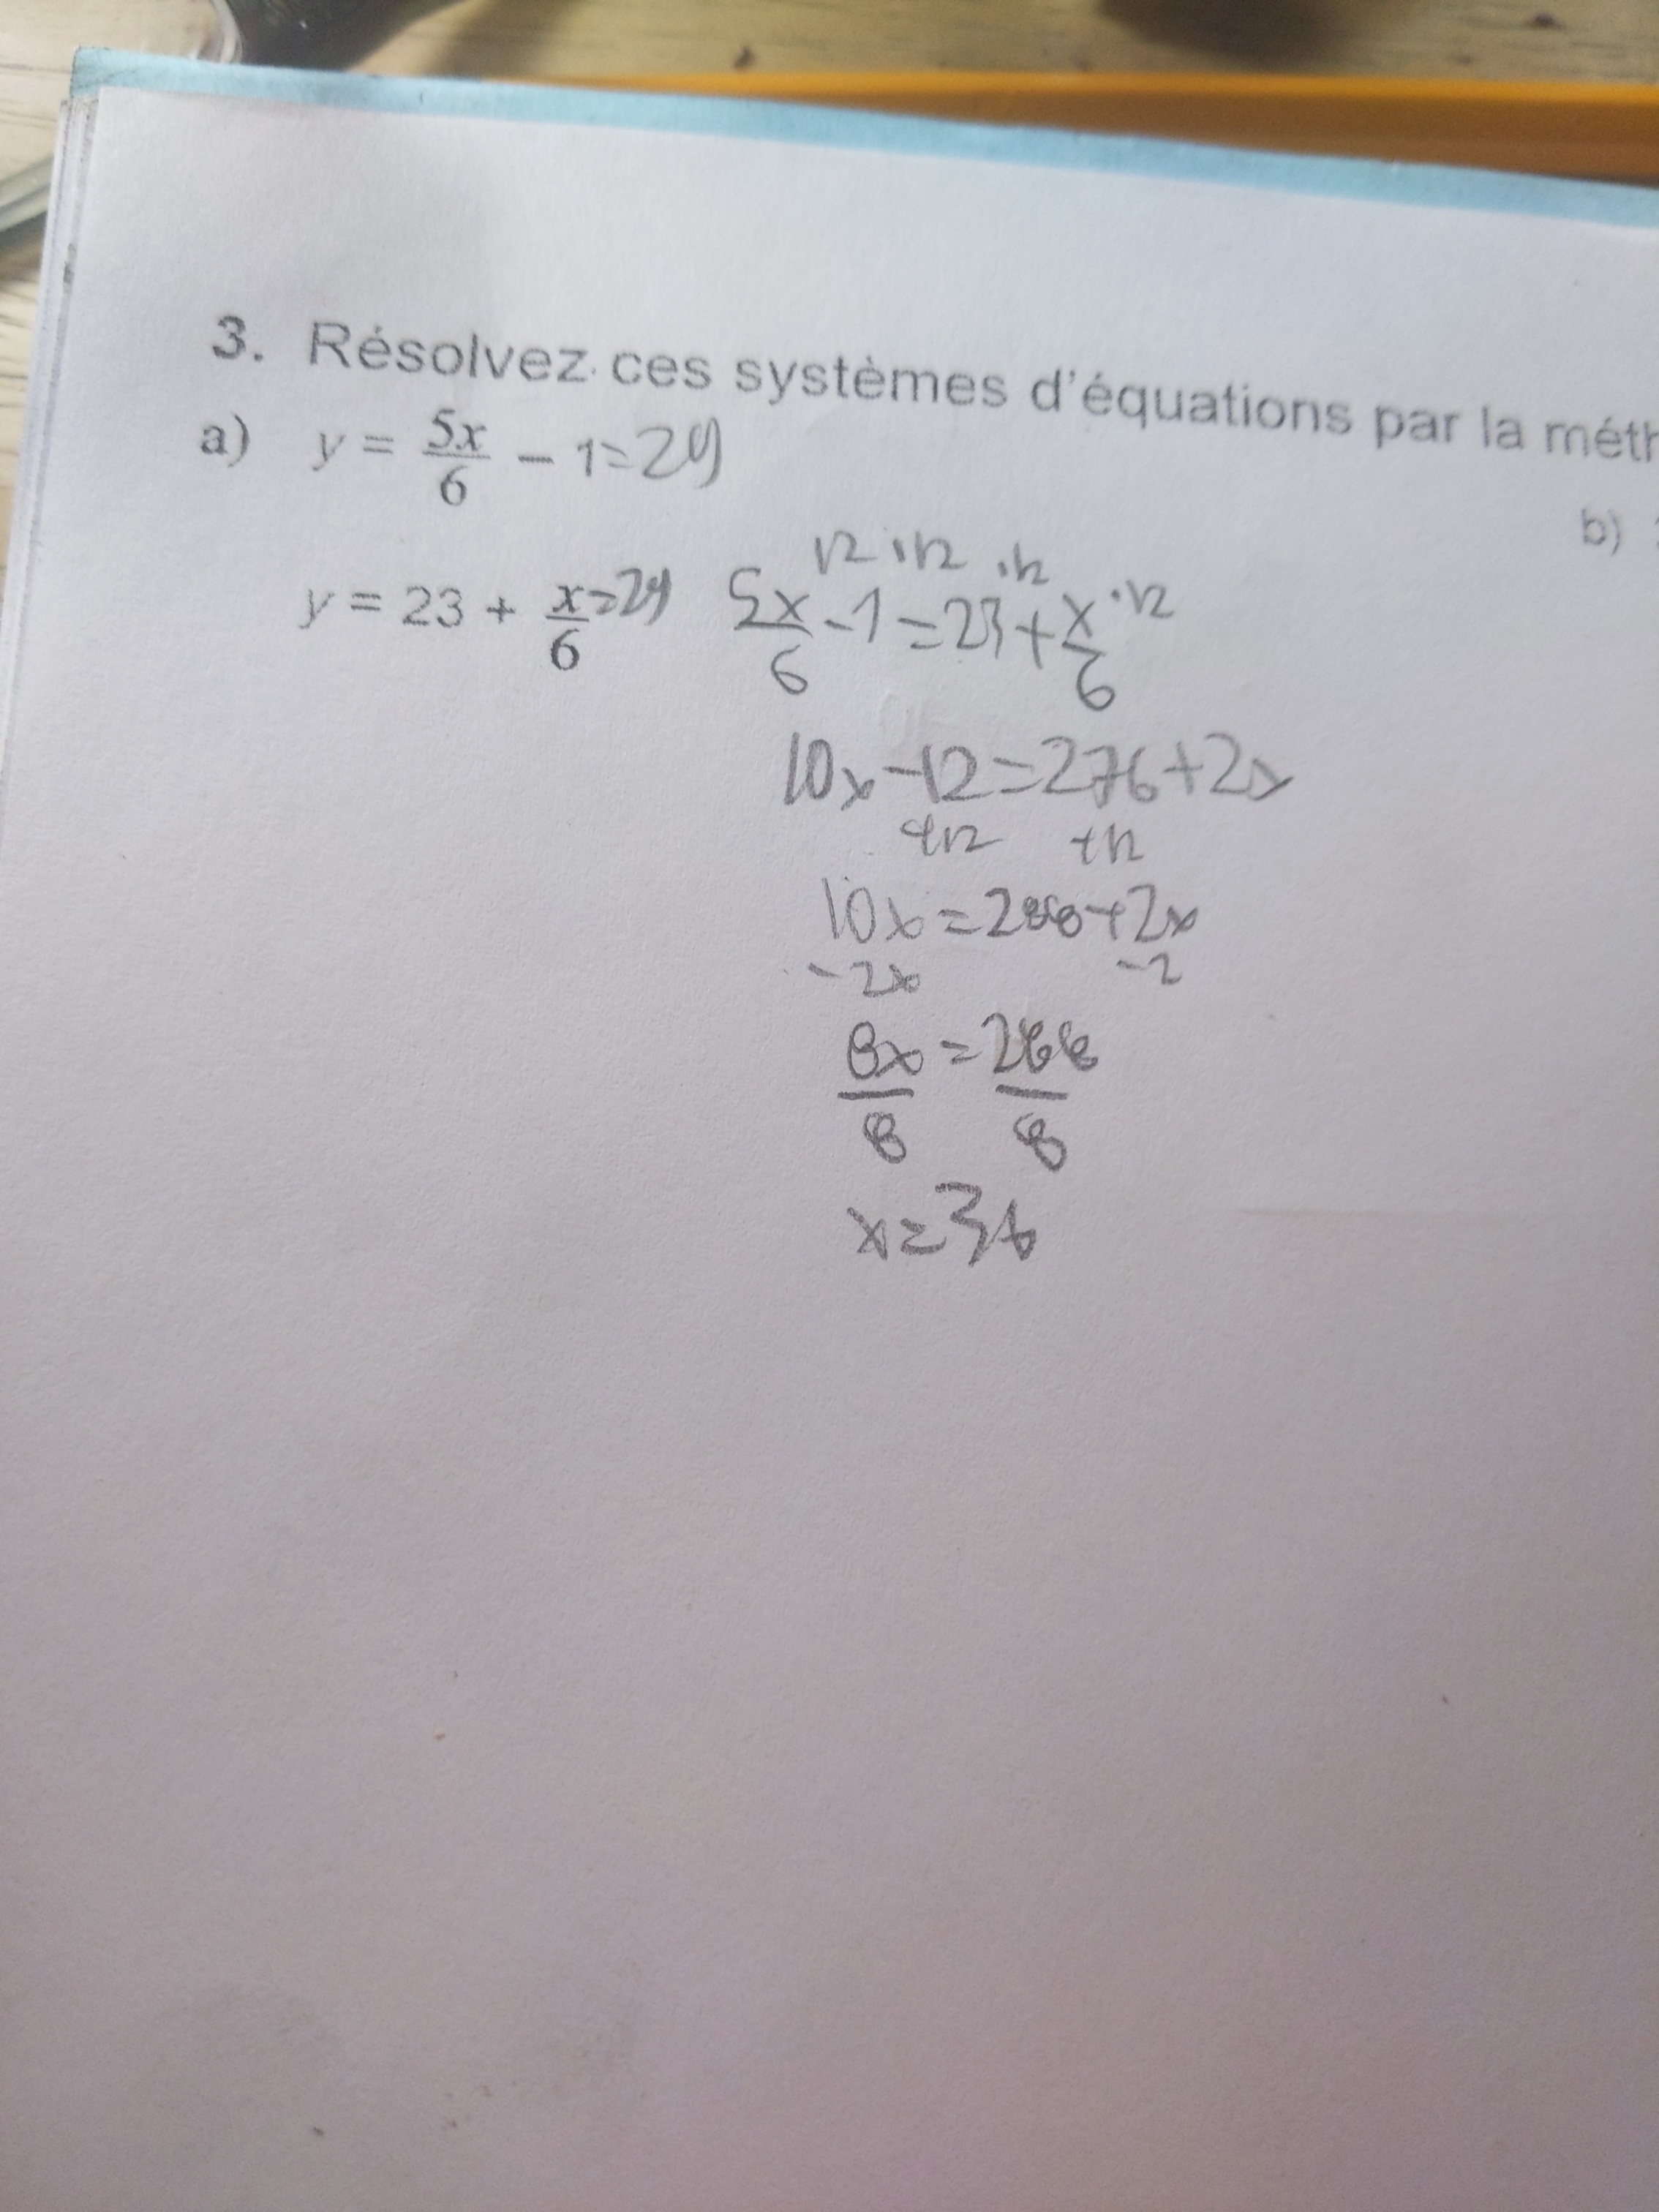 3. Résolvez ces systèmes d'équations par la méth
a) y = 5x/6 − 1 = 29
b)
y = 23 + x/6 = 29
5x/6 ·12 − 1 ·12 = 23 ·12 + x/6 ·12
10x − 12 = 276 + 2x
+12 +12
10x = 288 + 2x
−2x −2
8x/8 = 288/8
x = 36